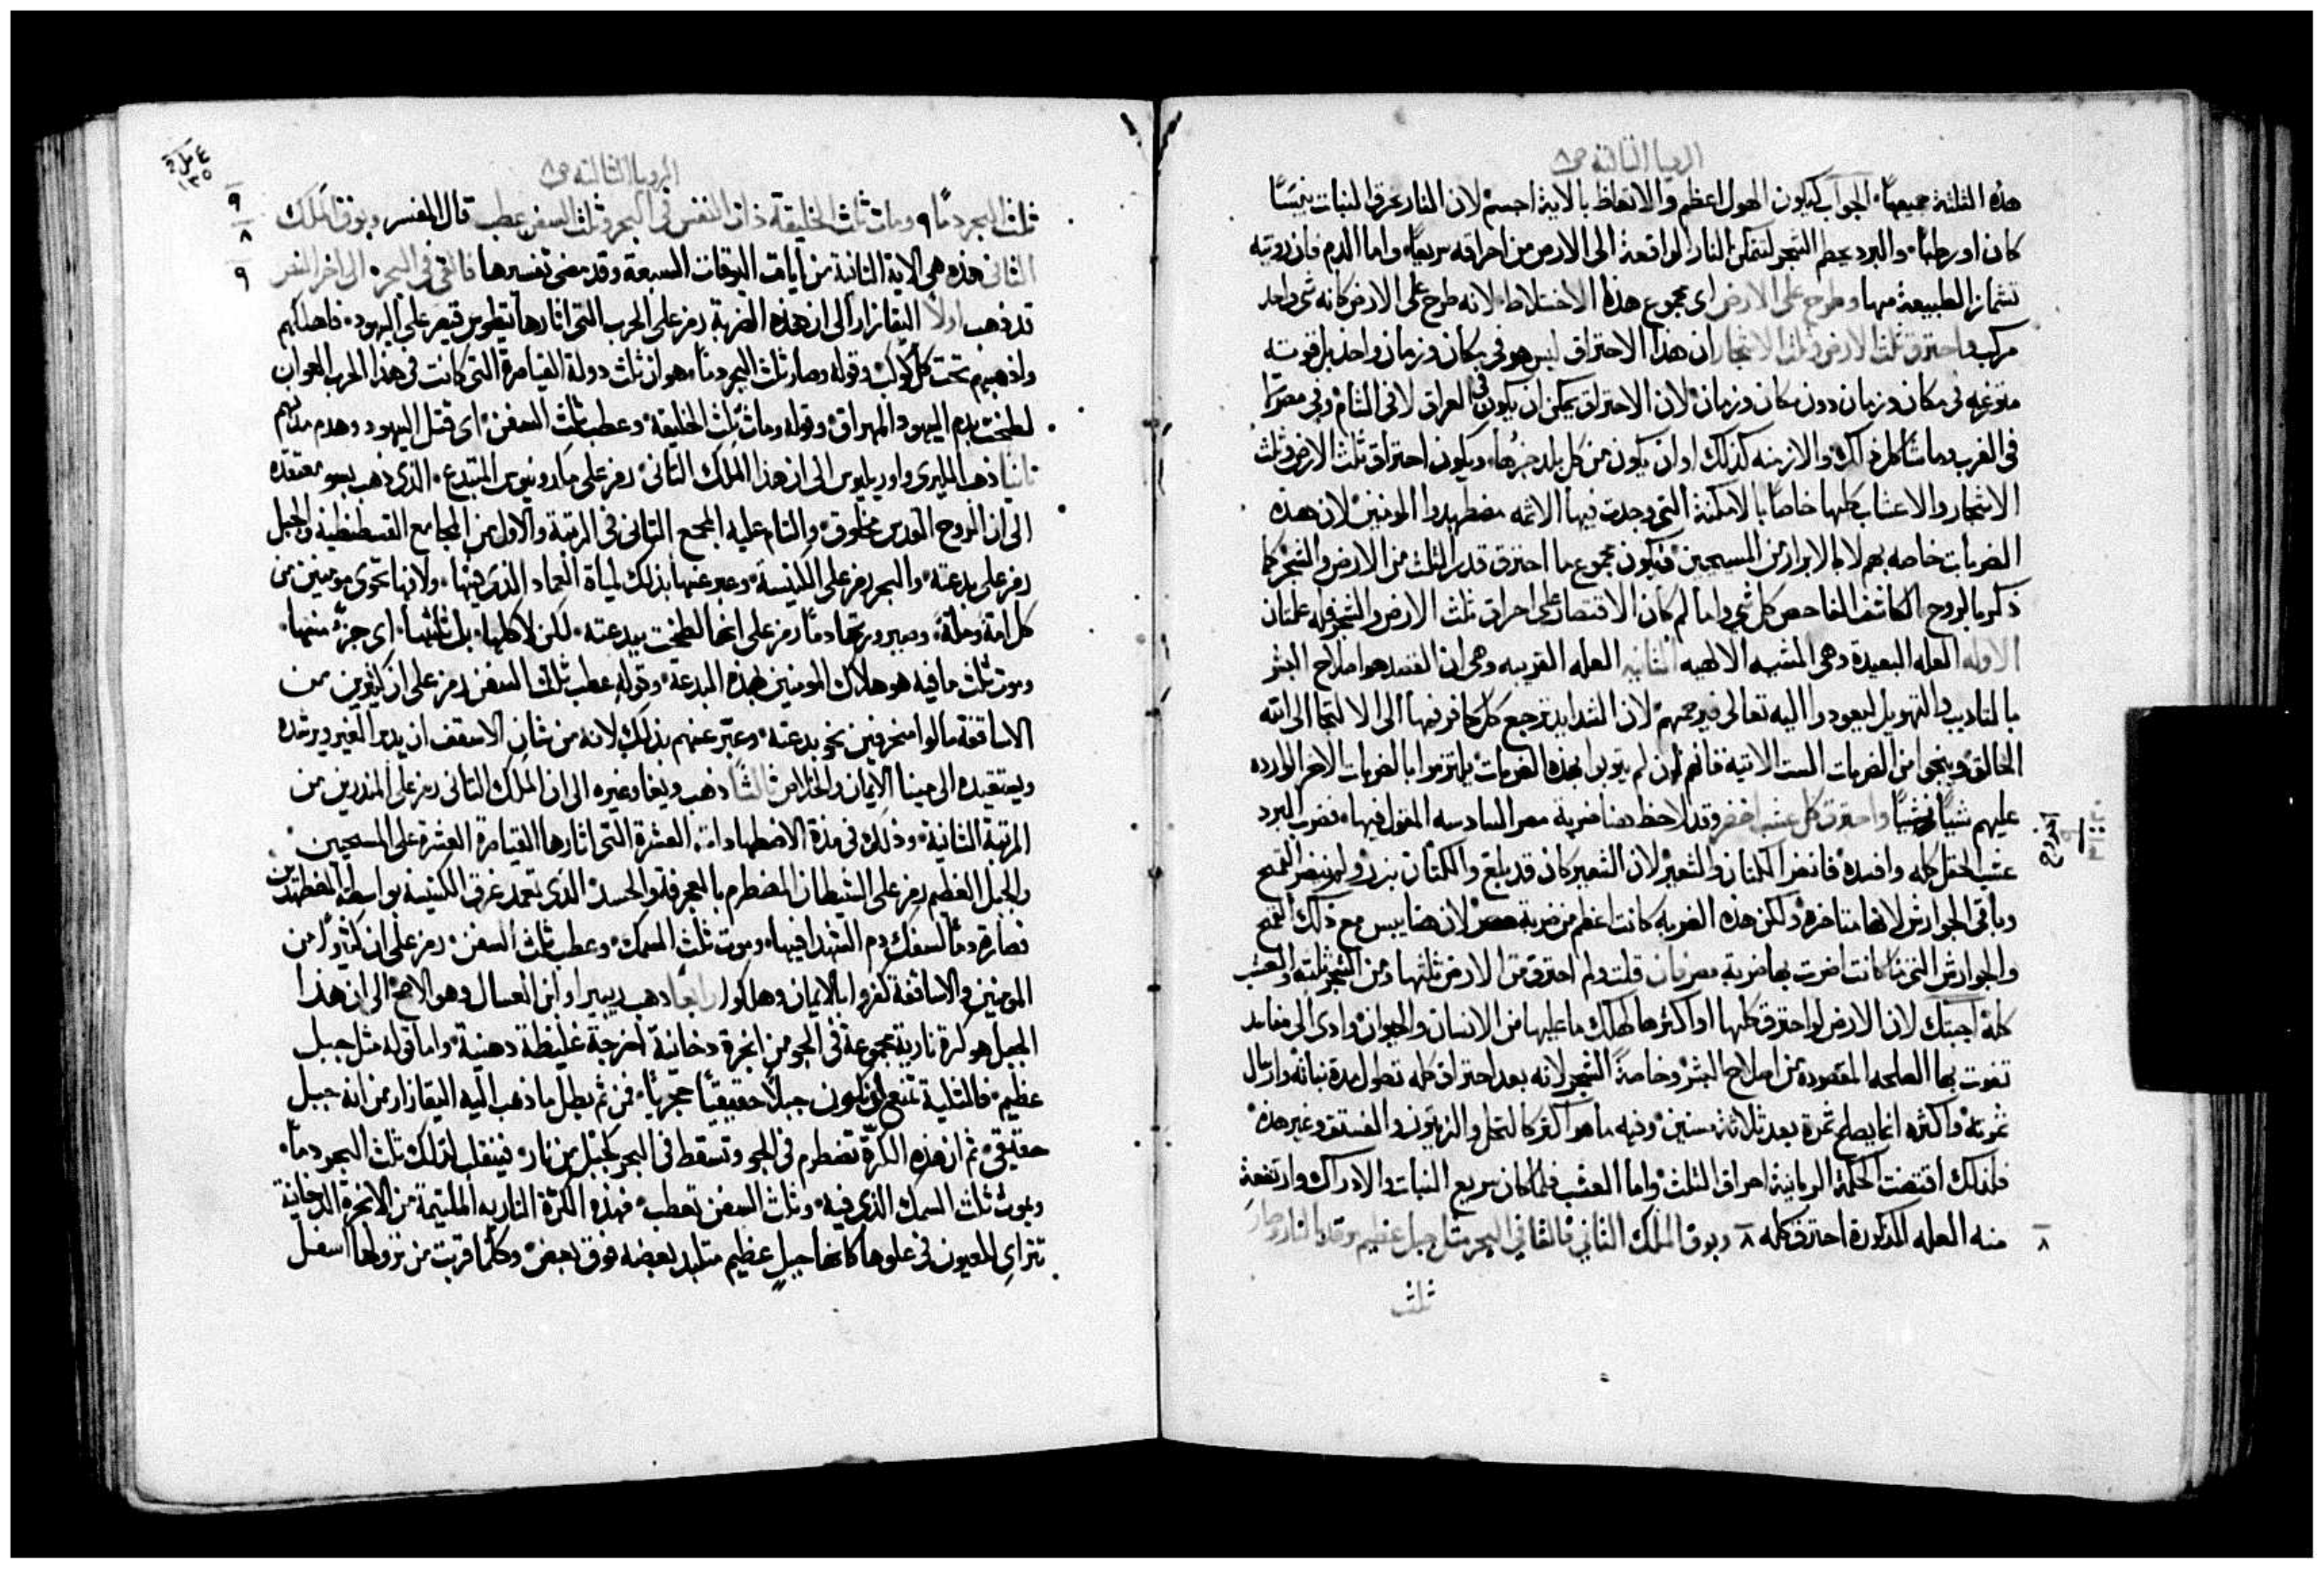 الرويا الثالثه ص٨
هذه الثلثة جميعها، الجواب ليكون الهول اعظم والاتعاظ بالابية اجسم لان النار تحرق النبات يبسًا
كان او رطبًا، والبرد يحطم الشجر لتتمكن النار الواقعة الى الارض من احراقه سريعًا، واما الدم فان رويته
تشماز الطبيعة منها وطرح على الارض اى مجموع هذا الاختلاط، لانه طرح على الارض كانه شى واحد
مركب واحترق ثلث الارض وثلث الاشجار ان هذا الاحتراق ليس هو فى مكان وزمان واحد بل قوته
متوزعه فى مكان وزمان دون مكان وزمان، لان الاحتراق يمكن ان يكون فى العراق لا فى الشام وفى مصر لا
فى الغرب وما شاكل ذلك، والازمنه كذلك او ان يكون من كل بلد جزها، ويكون احتراق ثلث الارض وثلث
الاشجار والاعشاب كلها خاصًا بالامكنة التى وجدت فيها الاثمه مضطهدوا المومنين لان هذه
الضربات خاصه بهم لا بالابرار من المسيحيين، فيكون مجموع ما احترق قدر الثلث من الارض والشجر كما
ذكر بالروح الكاشف الفاحص كل شى واما لم كان الاقتصار على احراق ثلث الارض والشجر فله علتان
الاوله العله البعيدة وهى المشيه الالهيه الثانيه العله القريبه وهى ان القصد هو اصلاح البشر
بالتاديب والتهويل ليعودوا اليه تعالى فيرحمهم لان الشدايد ترجع كل كافر فيها الى الالتجا الى الله
الخالق وينجى من الضربات الست الاتيه فانهم ان لم يتوبوا بهذه الضربات يلتزموا بالضربات الاخر الوارده
عليهم شيًا فشيًا واحترق كل عشب اخضر وقد لاحظ هنا ضربة مصر السادسه المقول فيها، فضرب البرد
عشب الحقل كله وافسده فانضر الكتان والشعير لان الشعير كان قد بلغ والكتان بزر ولم ينضر القمح
وباقى الجوارش لانها متاخره ولكن هذه الضربه كانت اعظم من ضربة مصر لان هنا يبس مع ذلك القمح
والجوارش التى ما كانت اضرت بها ضربة مصر فان قلت ولم احترق من الارض ثلثها ومن الشجر ثلثه والعشب
كله اجبتك لان الارض لو احترق كلها او اكثرها لهلك ما عليها من الانسان والحيوان وادى الى مفاسد
تفوت بها المصلحه المقصوده من اصلاح البشر وخاصةً الشجر لانه بعد احتراق كله تطول مدة نباته وارسال
ثمرته واكثره انما يصلح ثمرة بعد ثلاثة سنين وفيه ما هو اكثر كالنخل والزيتون والفستق وغير هذه
فلذلك اقتضت الحكمة الربانية احراق الثلث واما العشب فلما كان سريع النبات والادراك وارتفعة
منه العله المذكورة احترق كله ٨ وبوق الملك الثانى فالقا فى البحر مثل جبل عظيم يوقد بالنار وصار
٨
ثلث
الرويا الثالثه ص٨
ثلث البحر دمًا ٩ ومات ثلث الخليقة ذات النفس فى البحر وثلث السفن عطب قال المفسر وبوق الملك
٩
٨
الثانى هذه هى الاية الثانية من ايات البوقات السبعة وقد مضى تفسيرها فالقى فى البحر، الى اخر النص
٩
قد ذهب اولًا اليقازار الى ان هذه الضربة رمز على الحرب التى اثارها تيطوس قيصر على اليهود، فاهلكهم
واذهبهم تحت كل كوكب وقوله وصار ثلث البحر دمًا، هو ان ثلث دولة القياصرة التى كانت فى هذا الحرب العوان
لطخت بدم اليهود المهراق، وقوله ومات ثلث الخليقة، وعطب ثلث السفن، اى قتل اليهود وهدم مدنهم
ثانيًا ذهب الليرى واوريليوس الى ان هذا الملك الثانى رمز على مكدونيوس المبتدع، الذى ذهب بسو معتقده
الى ان الروح القدس مخلوق، والتام عليه المجمع الثانى فى الرتبة والاول من المجامع القسطنطينية والجبل
رمز على بدعته، والبحر رمز على الكنيسة، وعبر عنها بذلك لمياة العماد الذى فيها، ولانها تحوى مومنين من
كل امة وملة، وصيرورتها دمًا رمز على انها لطخت ببدعته، لكن لا كلها، بل ثلثها، اى جزء منها،
وموت ثلث ما فيه هو هلاك المومنين بهذه البدعة، وقوله عطب ثلث السفن رمز على ان كثيرين من
الاساقفة مالوا منحرفين نحو بدعته، وعبر عنهم بذلك لانه من شان الاسقف ان يدبر الغير ويرشده
ويعتقيده الى مينا الايمان والخلاص ثالثًا ذهب ويغا وغيره الى ان الملك الثانى رمز على المنذرين من
المرتبة الثانية، وذلك فى مدة الاضطهادات العشرة التى اثارها القياصرة العشرة على المسيحيين
والجبل العظيم رمز على الشيطان المضطرم بالعجرفة والحسد الذى تعمد غرق الكنيسة بواسطة المضطهدين
فصارة دمًا لسفك دم الشهدا فيها، وموت ثلث السمك، وعطب ثلث السفن، رمز على ان كثيرًا من
المومنين والاساقفة كفروا بالايمان وهلكوا رابعًا ذهب ريبيرا وابن العسال وهو الاصح الى ان هذا
الجبل هو كرة نارية مجموعة فى الجو من ابخرة دخانية اخرجة غليظة دهنية، واما قوله مثل جبل
عظيم، فالمثلية تمنع ان يكون جبلًا حقيقيًا حجريًا، فمن ثم بطل ما ذهب اليه اليقازار من انه جبل
حقيقى، ثم ان هذه الكرة تضطرم فى الجو وتسقط فى البحر كجبل من نار، فينقلب لذلك ثلث البحر دمًا،
ويموت ثلث السمك الذى فيه، وثلث السفن تعطب، فهذه الكرة الناريه الملتيمة من الابخرة الدخانية
تتراى للعيون فى علوها كانها جبل عظيم متلبد بعضه فوق بعض، وكلما قربت من نزولها اسفل